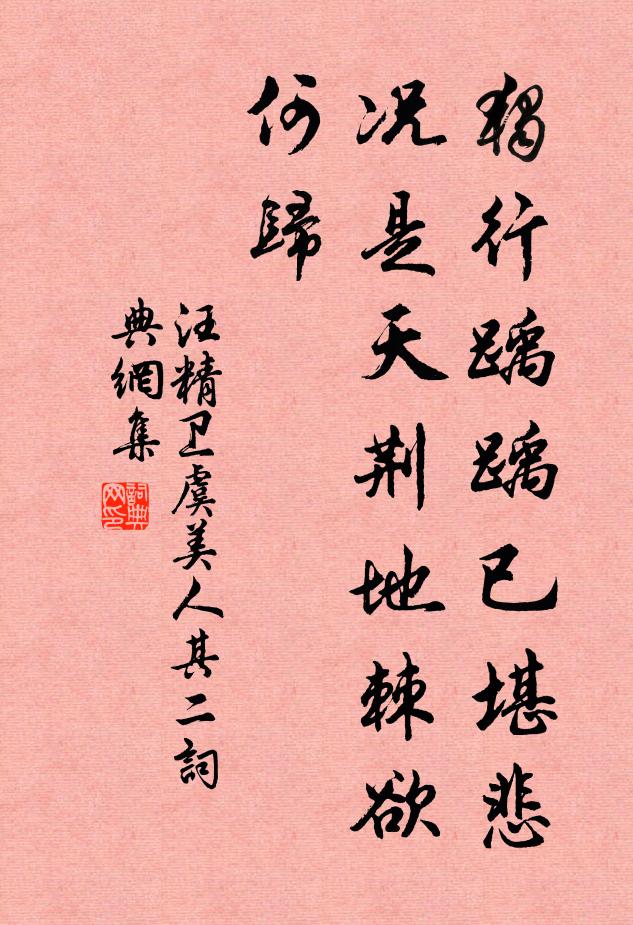 獨行踽踽已堪悲
况是天荆地棘欲
何歸
汪精卫虞美人其二詞
典網集
詞典
网印